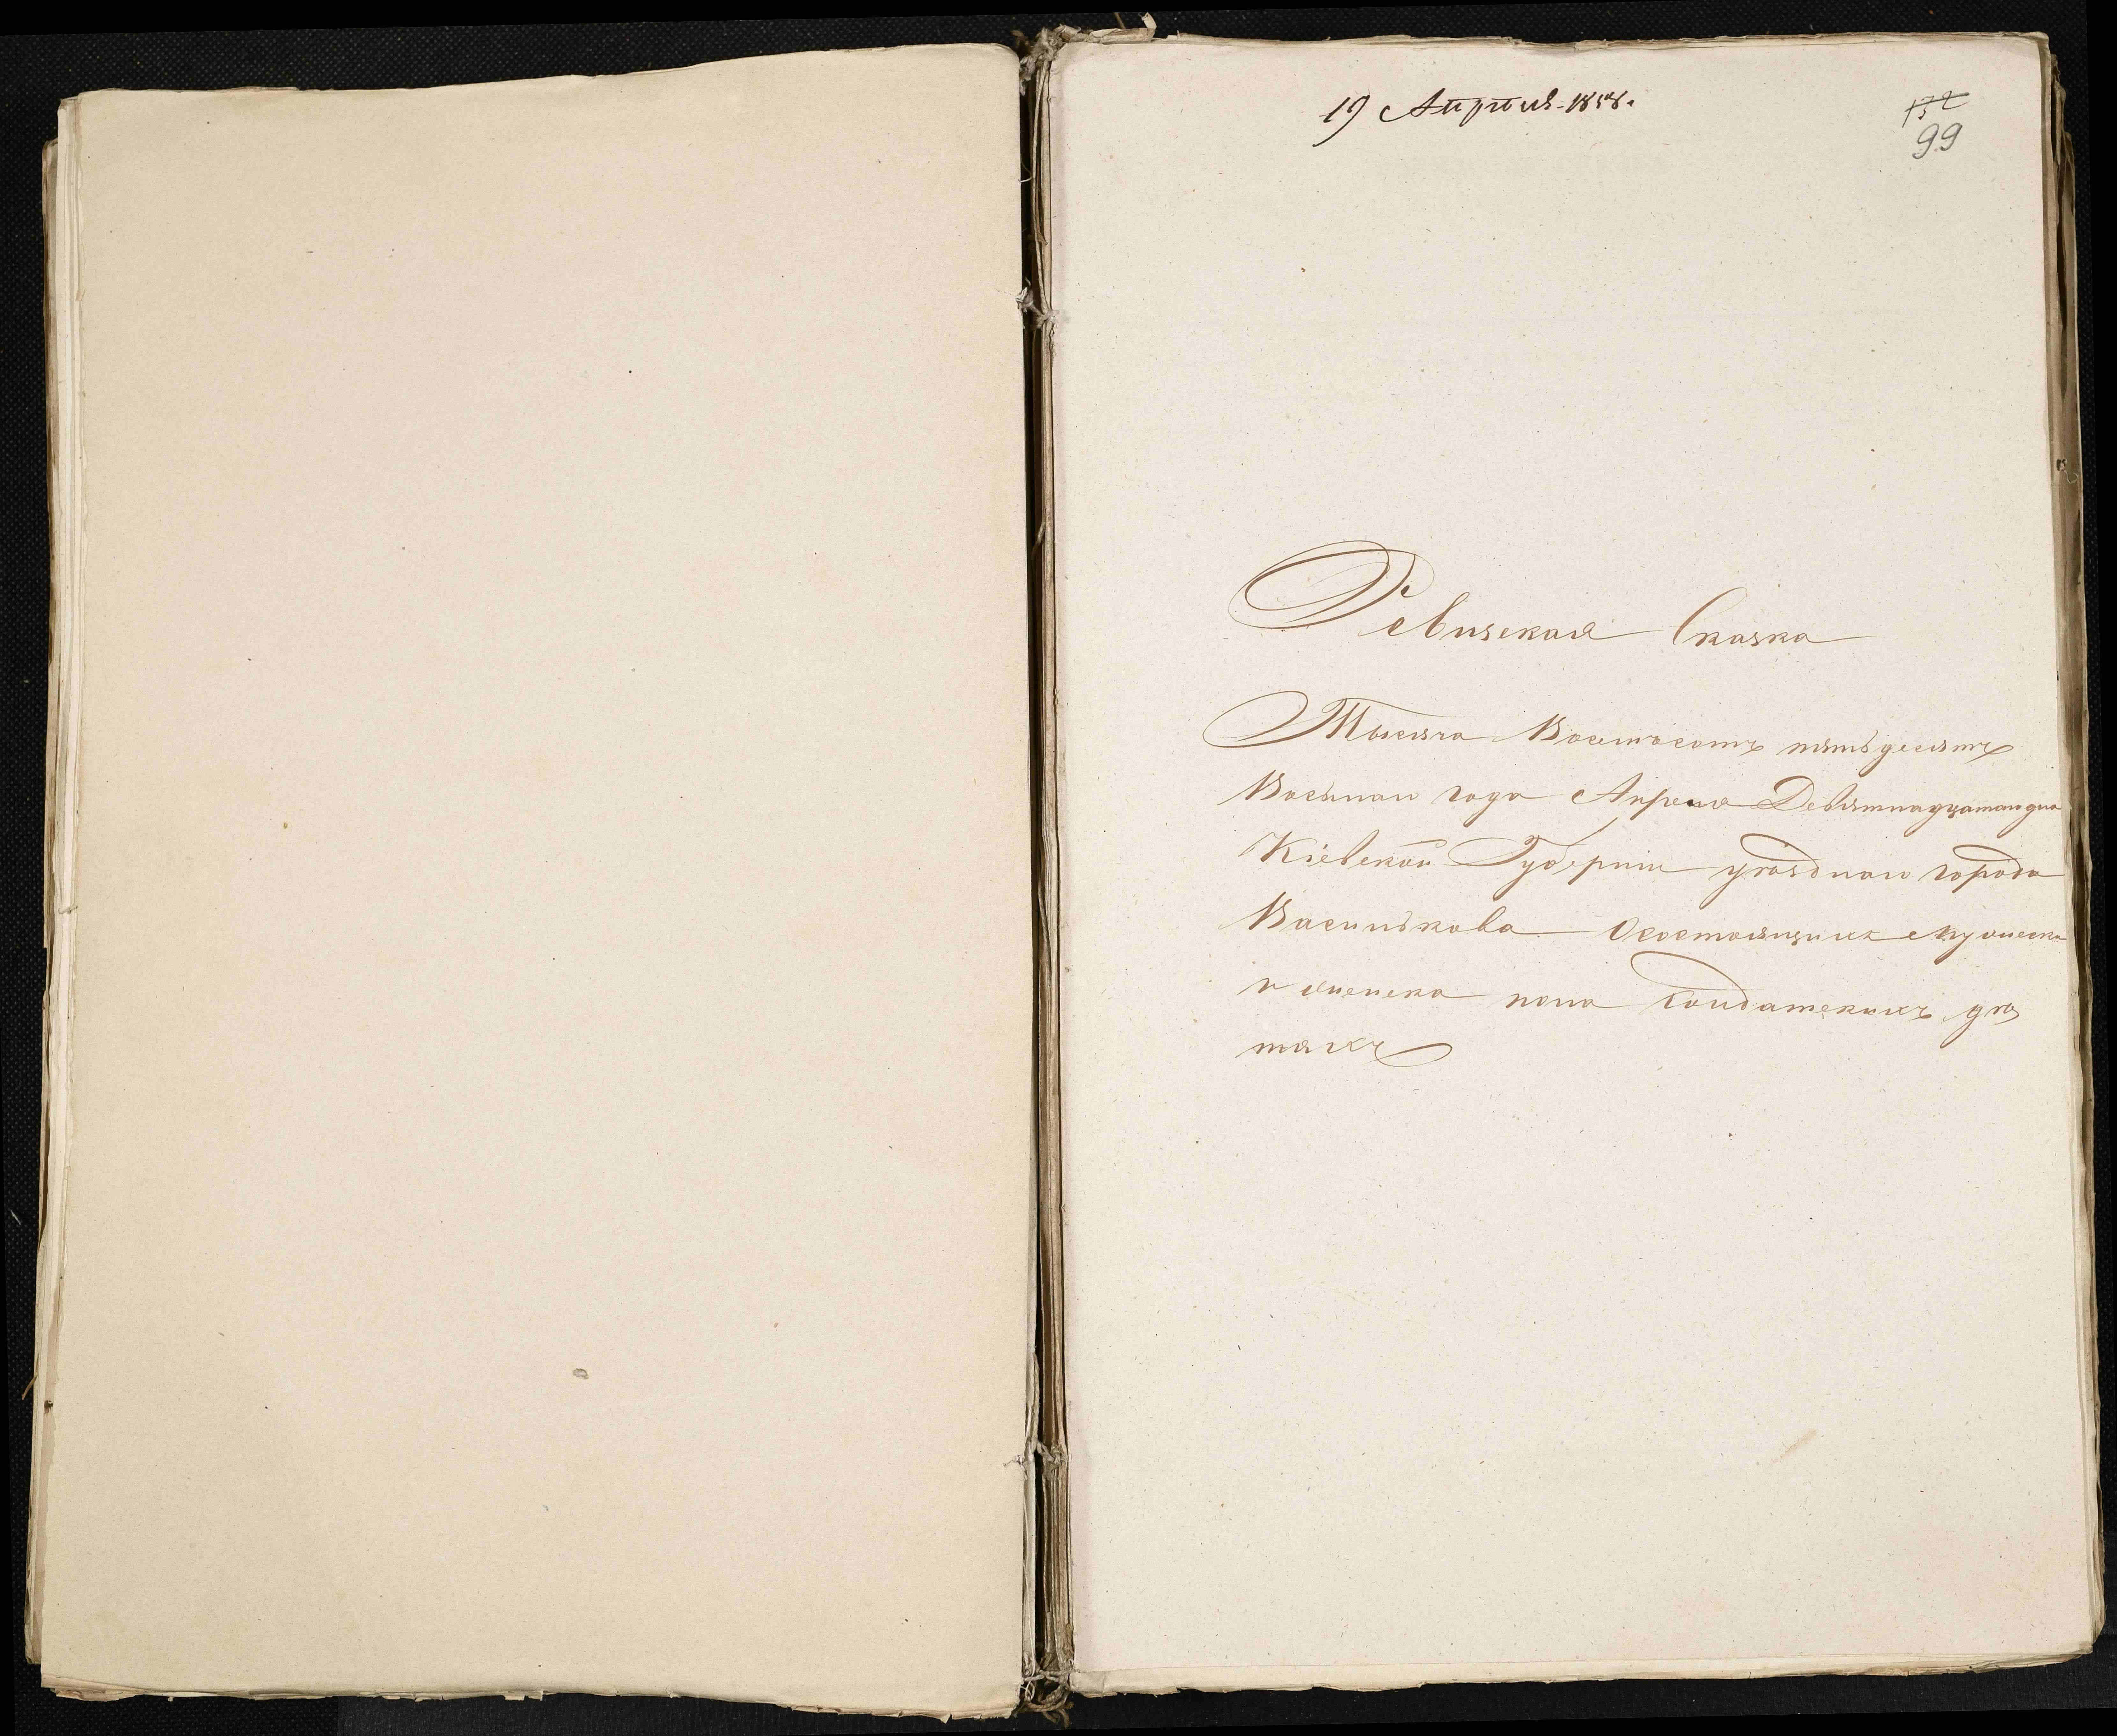 19 Апрѣля 1858.
132
99
Ревизская Сказка
Тысяча Восемьсотъ пятьдесятъ
Восьмаго года Апреля Девятнадцатаго дня
Кіевской Губерніи уѣзднаго города
Василькова О состоящихъ мужеска
и женска пола Солдатскихъ дѣ
тяхъ